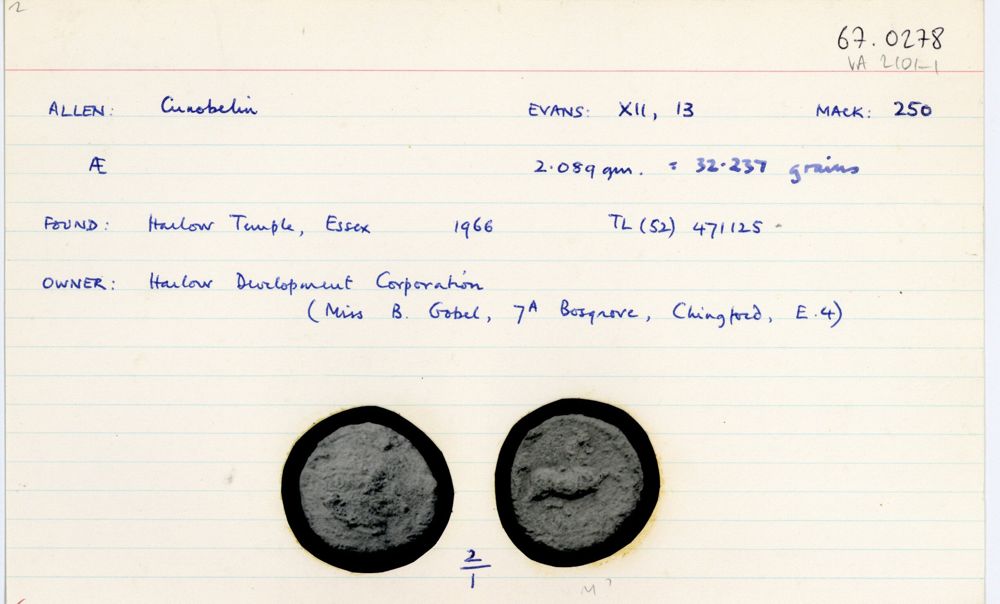 2
67.0278
VA 2101-1
ALLEN: Cunobelin EVANS: XII, 13 MACK: 250
Æ 2.089 gm. = 32.237 grains
FOUND: Harlow Temple, Essex 1966 TL (52) 471125
OWNER: Harlow Development Corporation
(Miss B. Gobel, 7A Bosgrove, Chingford, E.4)
2
1
M?